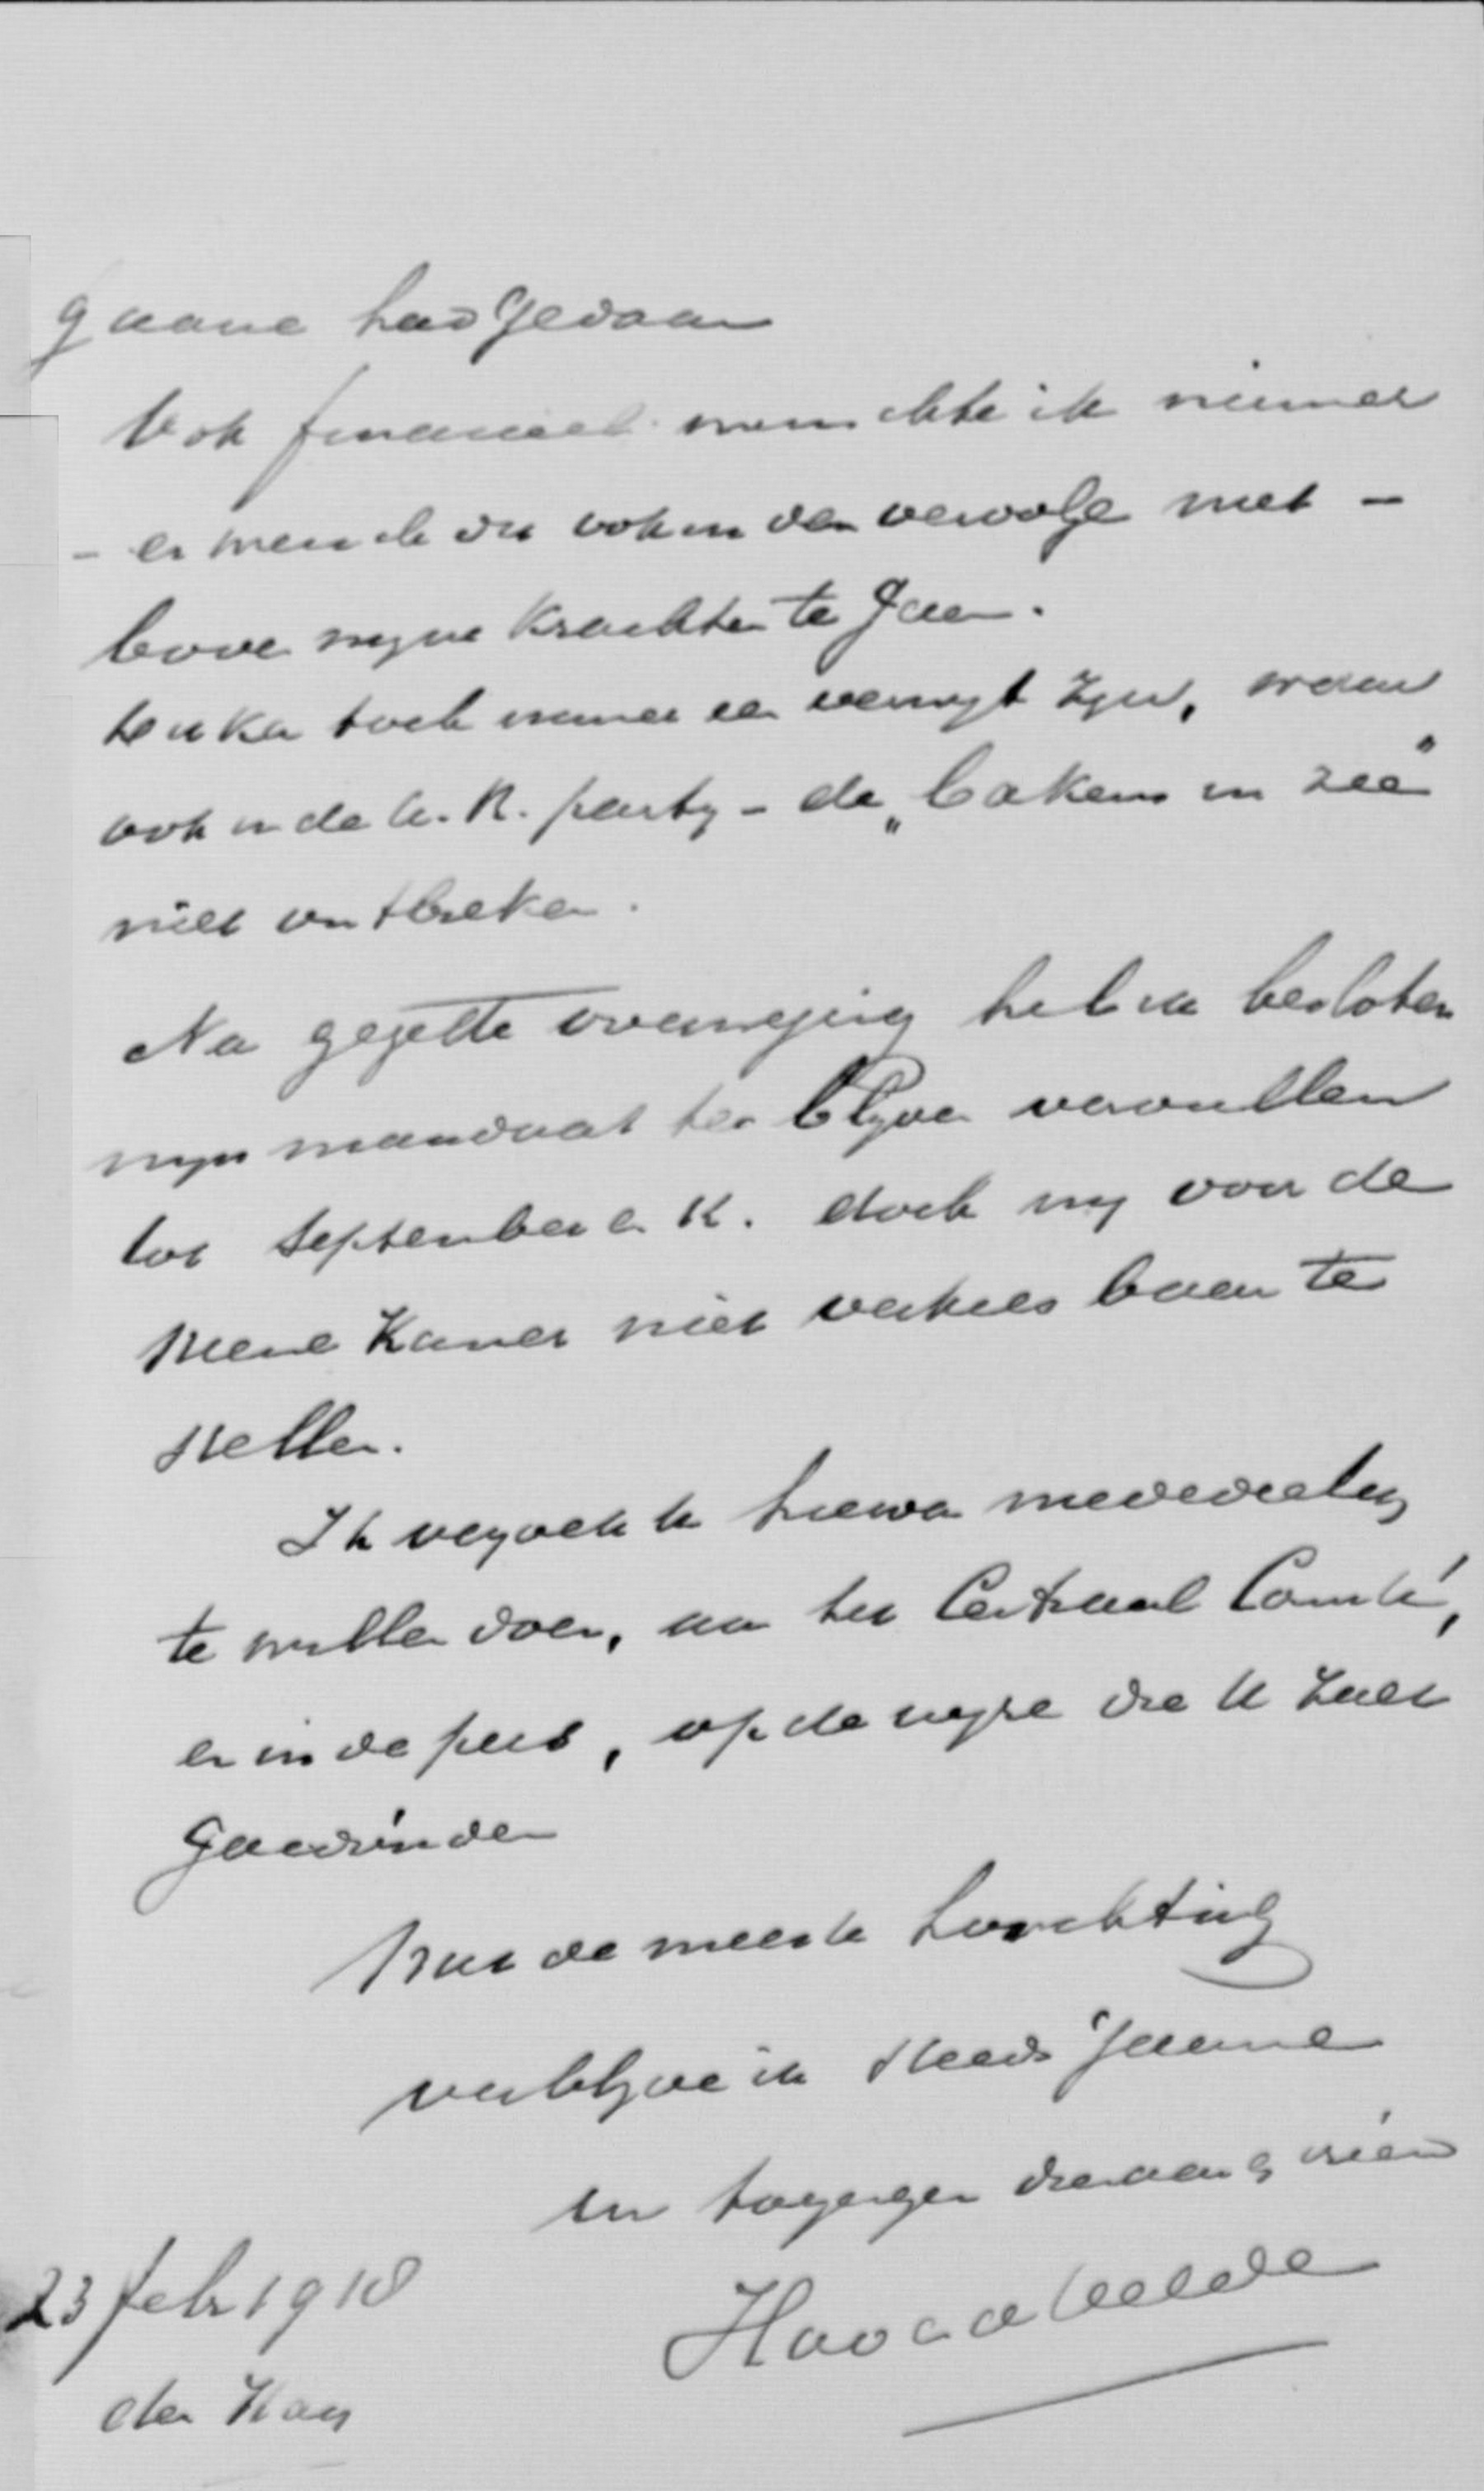 gaarne had gedaan
Ook financieel wenschte ik nimmer
– en wensch dit ook in den vervolge niet –
boven mijne krachten te gaan.
Het kan toch immer een verwijt zijn, waar
ook in de A.R. partij – de „bakens in zee"
niet ontbreken.
Na gezette overweging heb ik besloten
mijn mandaat te blijven vervullen
tot September a.k. doch mij voor de
nieuwe Kamer niet verkiesbaar te
stellen.
Ik verzoek U hiervan mededeeling
te willen doen, aan het Centraal Comité,
en in de pers, op de wijze die U zult
goedvinden
Met de meeste hoogachting
verblijve ik steeds gaarne
Uw toegenegen dienaar & vriend
H v d Velde
23 febr 1918
den Haag